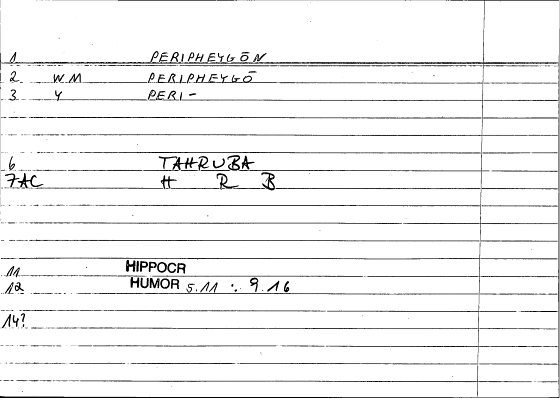 1 PERIPHEYGŌN
2 WM PERIPHEYGŌ
3 Y PERI-
6 TAHRUBA
7AC H R B
11 HIPPOCR
12 HUMOR 5.11 : 9.16
14?